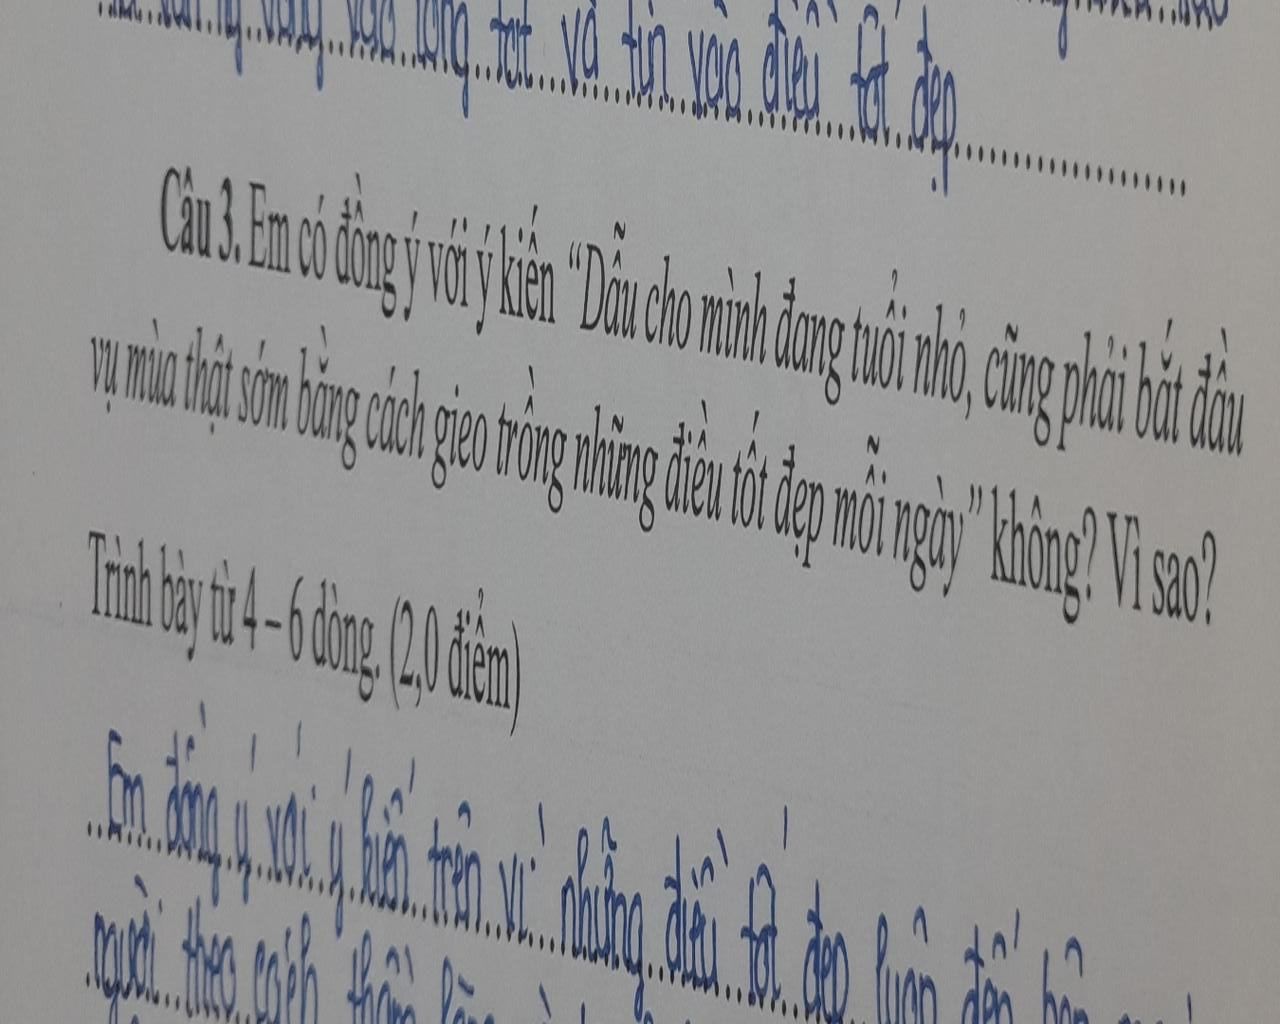 vào lòng tốt và tin vào điều tốt đẹp
Câu 3. Em có đồng ý với ý kiến “Dẫu cho mình đang tuổi nhỏ, cũng phải bắt đầu
vụ mùa thật sớm bằng cách gieo trồng những điều tốt đẹp mỗi ngày” không? Vì sao?
Trình bày từ 4 – 6 dòng. (2,0 điểm)
Em đồng ý với ý kiến trên vì những điều tốt đẹp luôn đến bên
người theo cách thầm